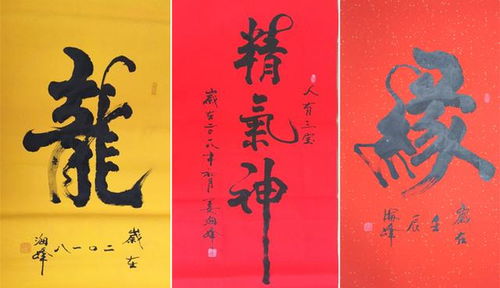 龍
歲在
二〇一八
海峰
人有三宝
精氣神
歲在二〇一八年
月姜海峰
緣
歲在
壬
辰
海峰